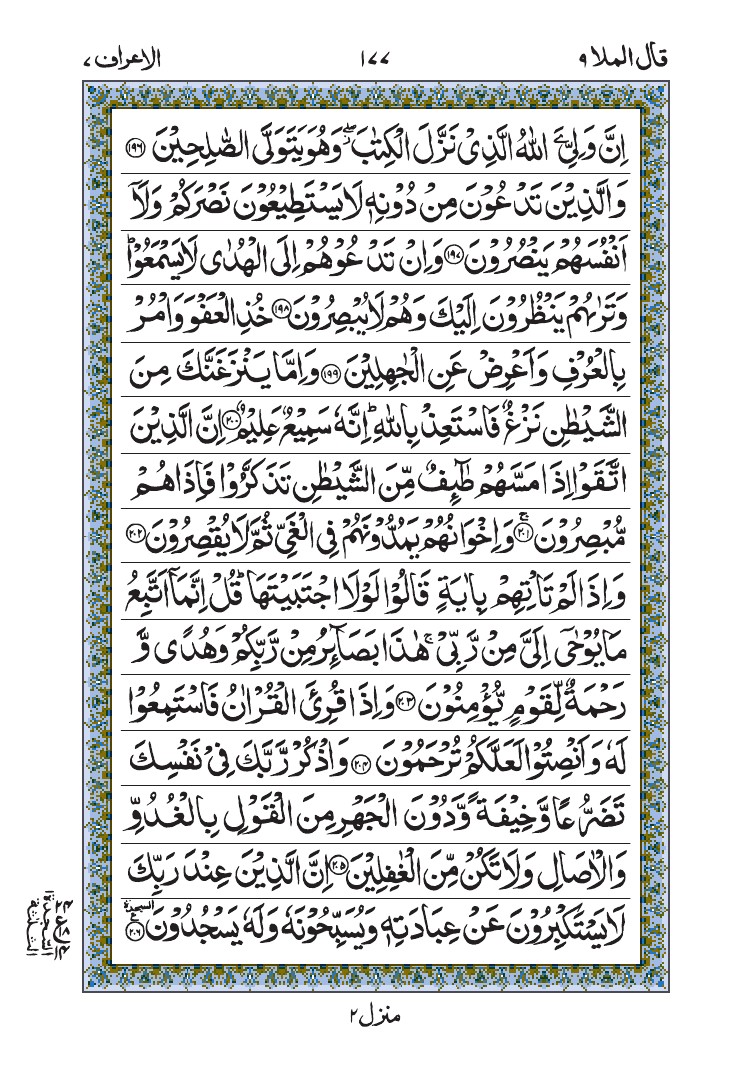 قال الملا ۹
۱۷۷
الاعراف ۷
اِنَّ وَلِیِّۦَ اللّٰهُ الَّذِیْ نَزَّلَ الْكِتٰبَ ۖ٘ وَهُوَ یَتَوَلَّی الصّٰلِحِیْنَ ﴿۱۹۶﴾
وَالَّذِیْنَ تَدْعُوْنَ مِنْ دُوْنِهٖ لَا یَسْتَطِیْعُوْنَ نَصْرَكُمْ وَلَاۤ
اَنْفُسَهُمْ یَنْصُرُوْنَ ﴿۱۹۷﴾ وَاِنْ تَدْعُوْهُمْ اِلَی الْهُدٰی لَا یَسْمَعُوْا ؕ
وَتَرٰىهُمْ یَنْظُرُوْنَ اِلَیْكَ وَهُمْ لَا یُبْصِرُوْنَ ﴿۱۹۸﴾ خُذِ الْعَفْوَ وَاْمُرْ
بِالْعُرْفِ وَاَعْرِضْ عَنِ الْجٰهِلِیْنَ ﴿۱۹۹﴾ وَاِمَّا یَنْزَغَنَّكَ مِنَ
الشَّیْطٰنِ نَزْغٌ فَاسْتَعِذْ بِاللّٰهِ ؕ اِنَّهٗ سَمِیْعٌ عَلِیْمٌ ﴿۲۰۰﴾ اِنَّ الَّذِیْنَ
اتَّقَوْا اِذَا مَسَّهُمْ طٰٓىِٕفٌ مِّنَ الشَّیْطٰنِ تَذَكَّرُوْا فَاِذَا هُمْ
مُّبْصِرُوْنَ ﴿۲۰۱﴾ۚ وَاِخْوَانُهُمْ یَمُدُّوْنَهُمْ فِی الْغَیِّ ثُمَّ لَا یُقْصِرُوْنَ ﴿۲۰۲﴾
وَاِذَا لَمْ تَاْتِهِمْ بِاٰیَةٍ قَالُوْا لَوْلَا اجْتَبَیْتَهَا ؕ قُلْ اِنَّمَاۤ اَتَّبِعُ
مَا یُوْحٰۤی اِلَیَّ مِنْ رَّبِّیْ ۚ هٰذَا بَصَآىِٕرُ مِنْ رَّبِّكُمْ وَهُدًی وَّ
رَحْمَةٌ لِّقَوْمٍ یُّؤْمِنُوْنَ ﴿۲۰۳﴾ وَاِذَا قُرِئَ الْقُرْاٰنُ فَاسْتَمِعُوْا
لَهٗ وَاَنْصِتُوْا لَعَلَّكُمْ تُرْحَمُوْنَ ﴿۲۰۴﴾ وَاذْكُرْ رَّبَّكَ فِیْ نَفْسِكَ
تَضَرُّعًا وَّخِیْفَةً وَّدُوْنَ الْجَهْرِ مِنَ الْقَوْلِ بِالْغُدُوِّ
وَالْاٰصَالِ وَلَا تَكُنْ مِّنَ الْغٰفِلِیْنَ ﴿۲۰۵﴾ اِنَّ الَّذِیْنَ عِنْدَ رَبِّكَ
لَا یَسْتَكْبِرُوْنَ عَنْ عِبَادَتِهٖ وَیُسَبِّحُوْنَهٗ وَلَهٗ یَسْجُدُوْنَ ﴿۲۰۶﴾ السجدة
منزل ۲